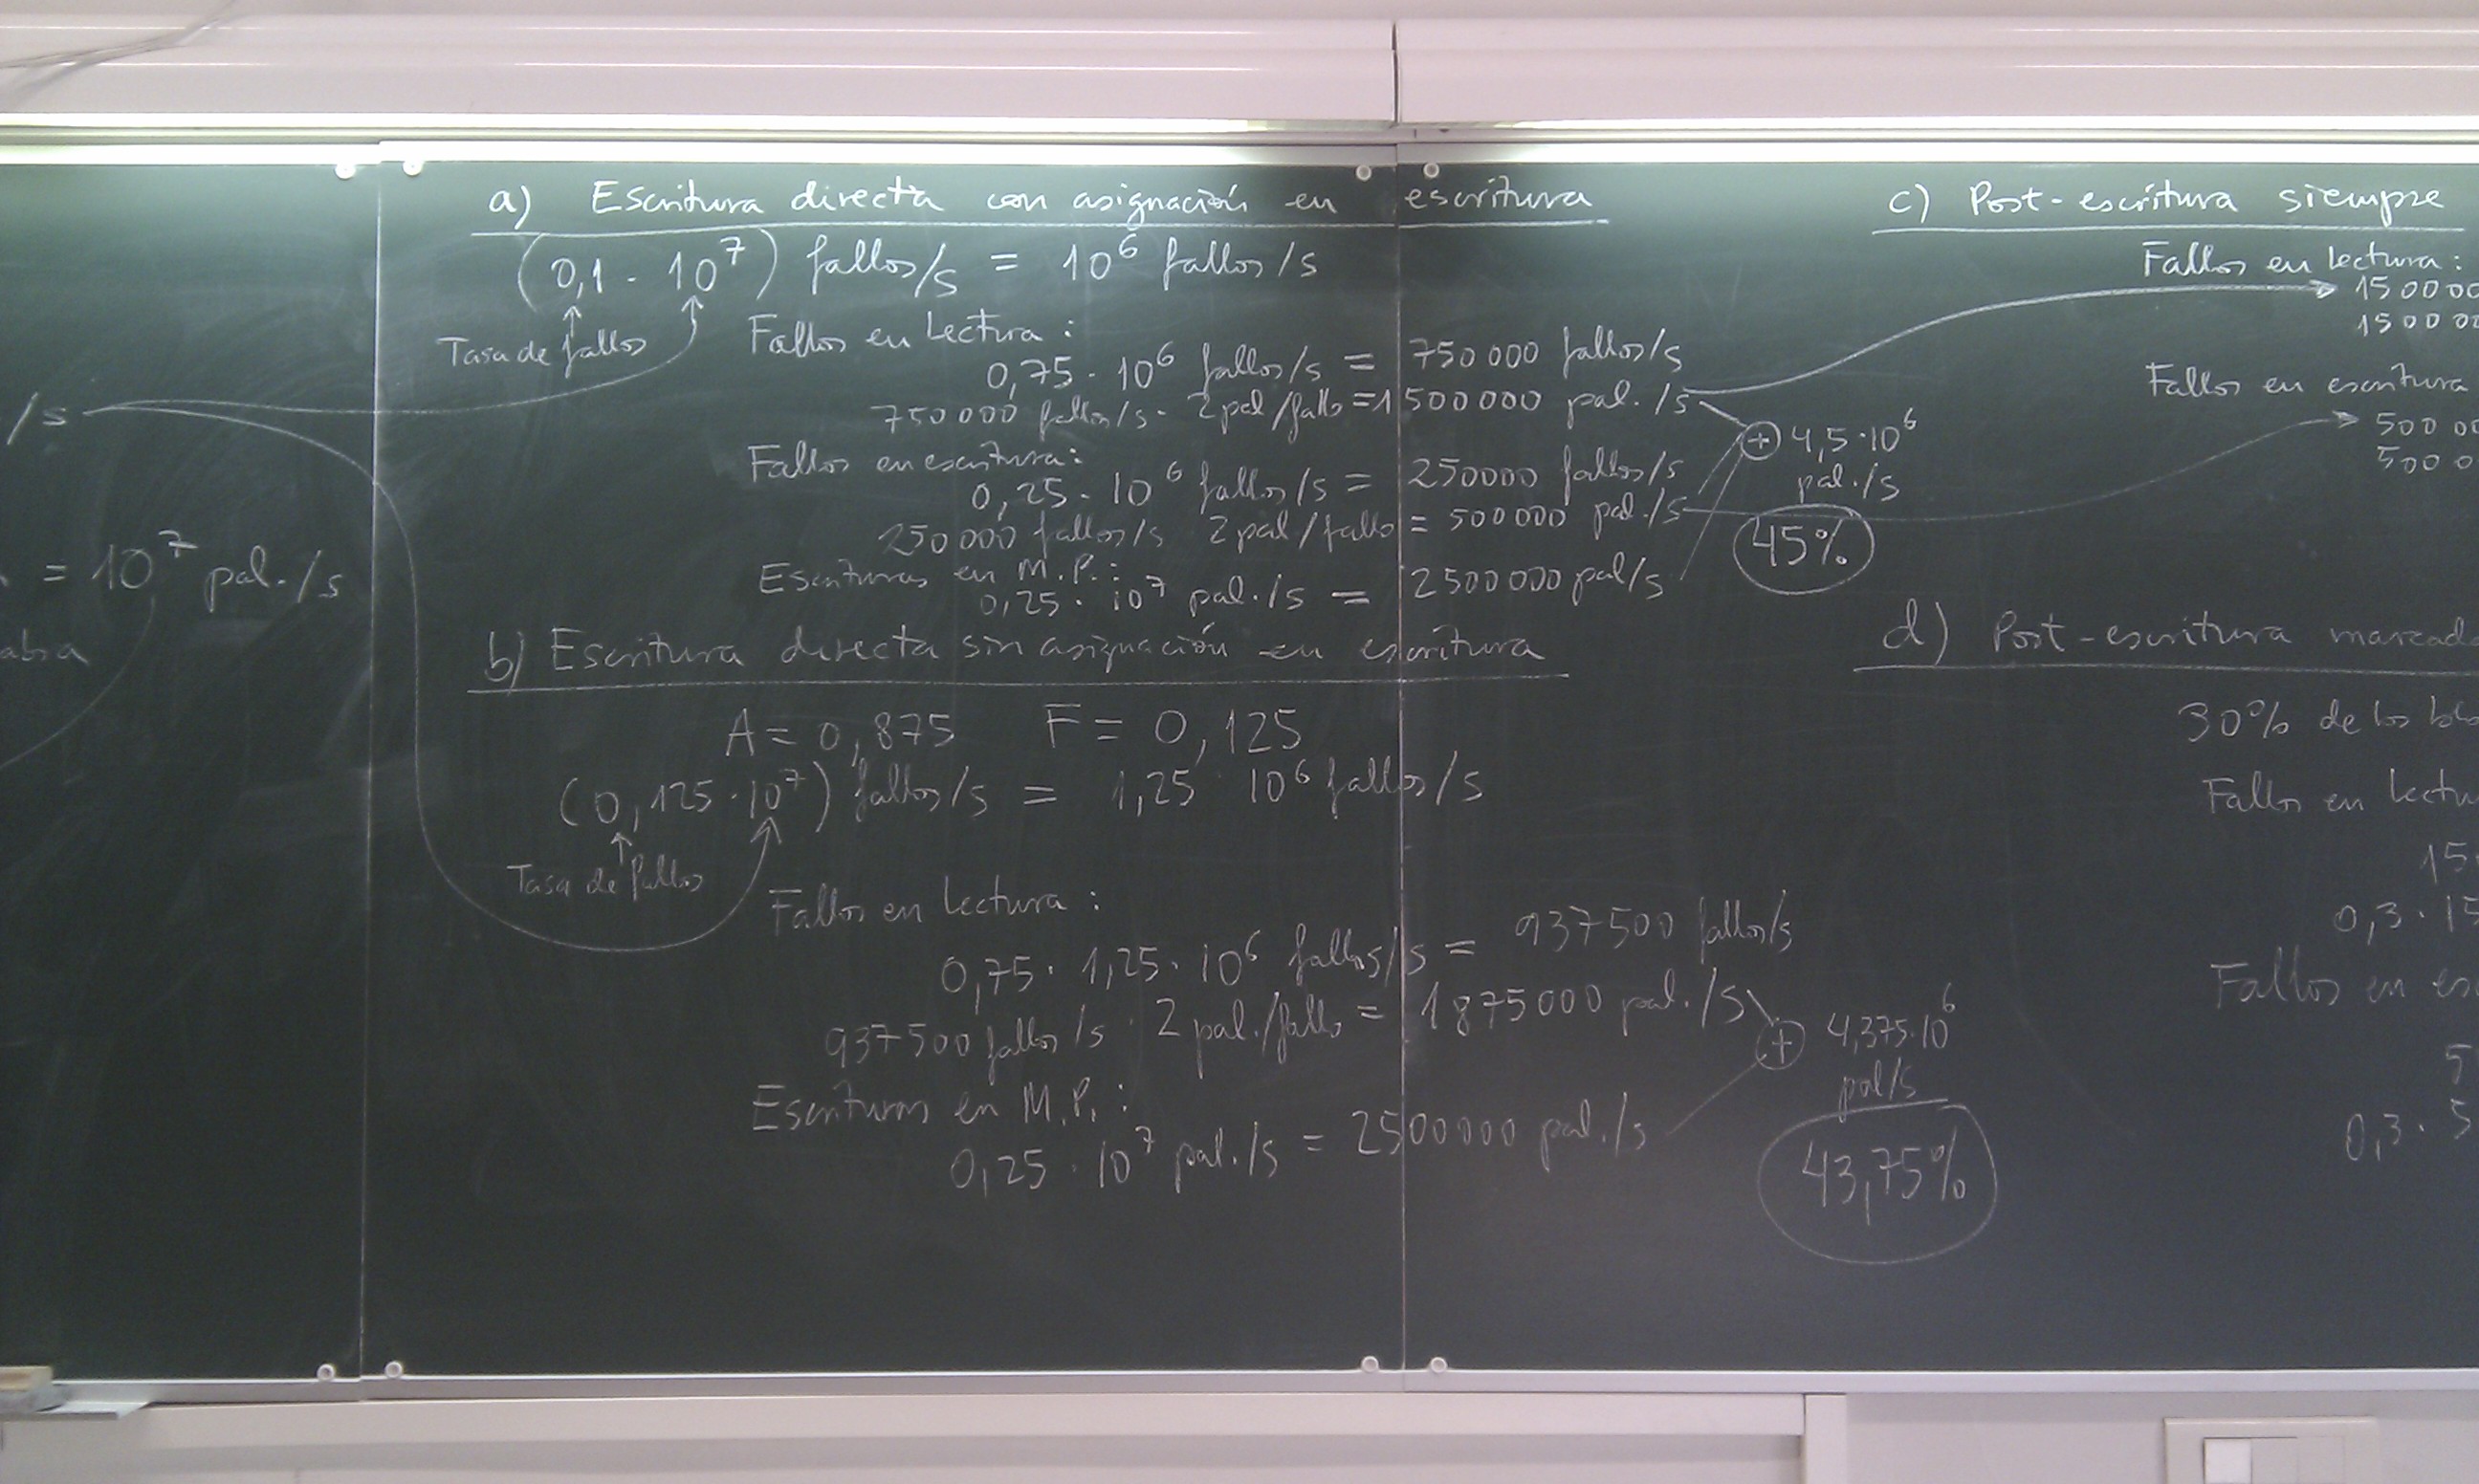 /s
= 10⁷ pal./s
a) Escritura directa con asignación en escritura
(0,1 · 10⁷) fallos/s = 10⁶ fallos/s
Tasa de fallos
Fallos en Lectura:
0,75 · 10⁶ fallos/s = 750 000 fallos/s
750 000 fallos/s · 2 pal/fallo = 1 500 000 pal./s
Fallos en escritura:
0,25 · 10⁶ fallos/s = 250000 fallos/s
250 000 fallos/s 2 pal/fallo = 500 000 pal./s
Escrituras en M.P.:
0,25 · 10⁷ pal./s = 2 500 000 pal/s
+ 4,5·10⁶
pal./s
45%
b) Escritura directa sin asignación en escritura
A = 0,875 F = 0,125
(0,125 · 10⁷) fallos/s = 1,25 10⁶ fallos/s
Tasa de fallos
Fallos en Lectura:
0,75 · 1,25 · 10⁶ fallos/s = 937500 fallos/s
937500 fallos/s · 2 pal./fallo = 1875000 pal./s
Escrituras en M.P.:
0,25 · 10⁷ pal./s = 2500000 pal./s
+ 4,375·10⁶
pal/s
43,75%
c) Post-escritura siempre
Fallos en Lectura:
Fallos en escritura
d) Post-escritura
30% de los
Fallos en
0,3 ·
Fallos en
0,3 · 5